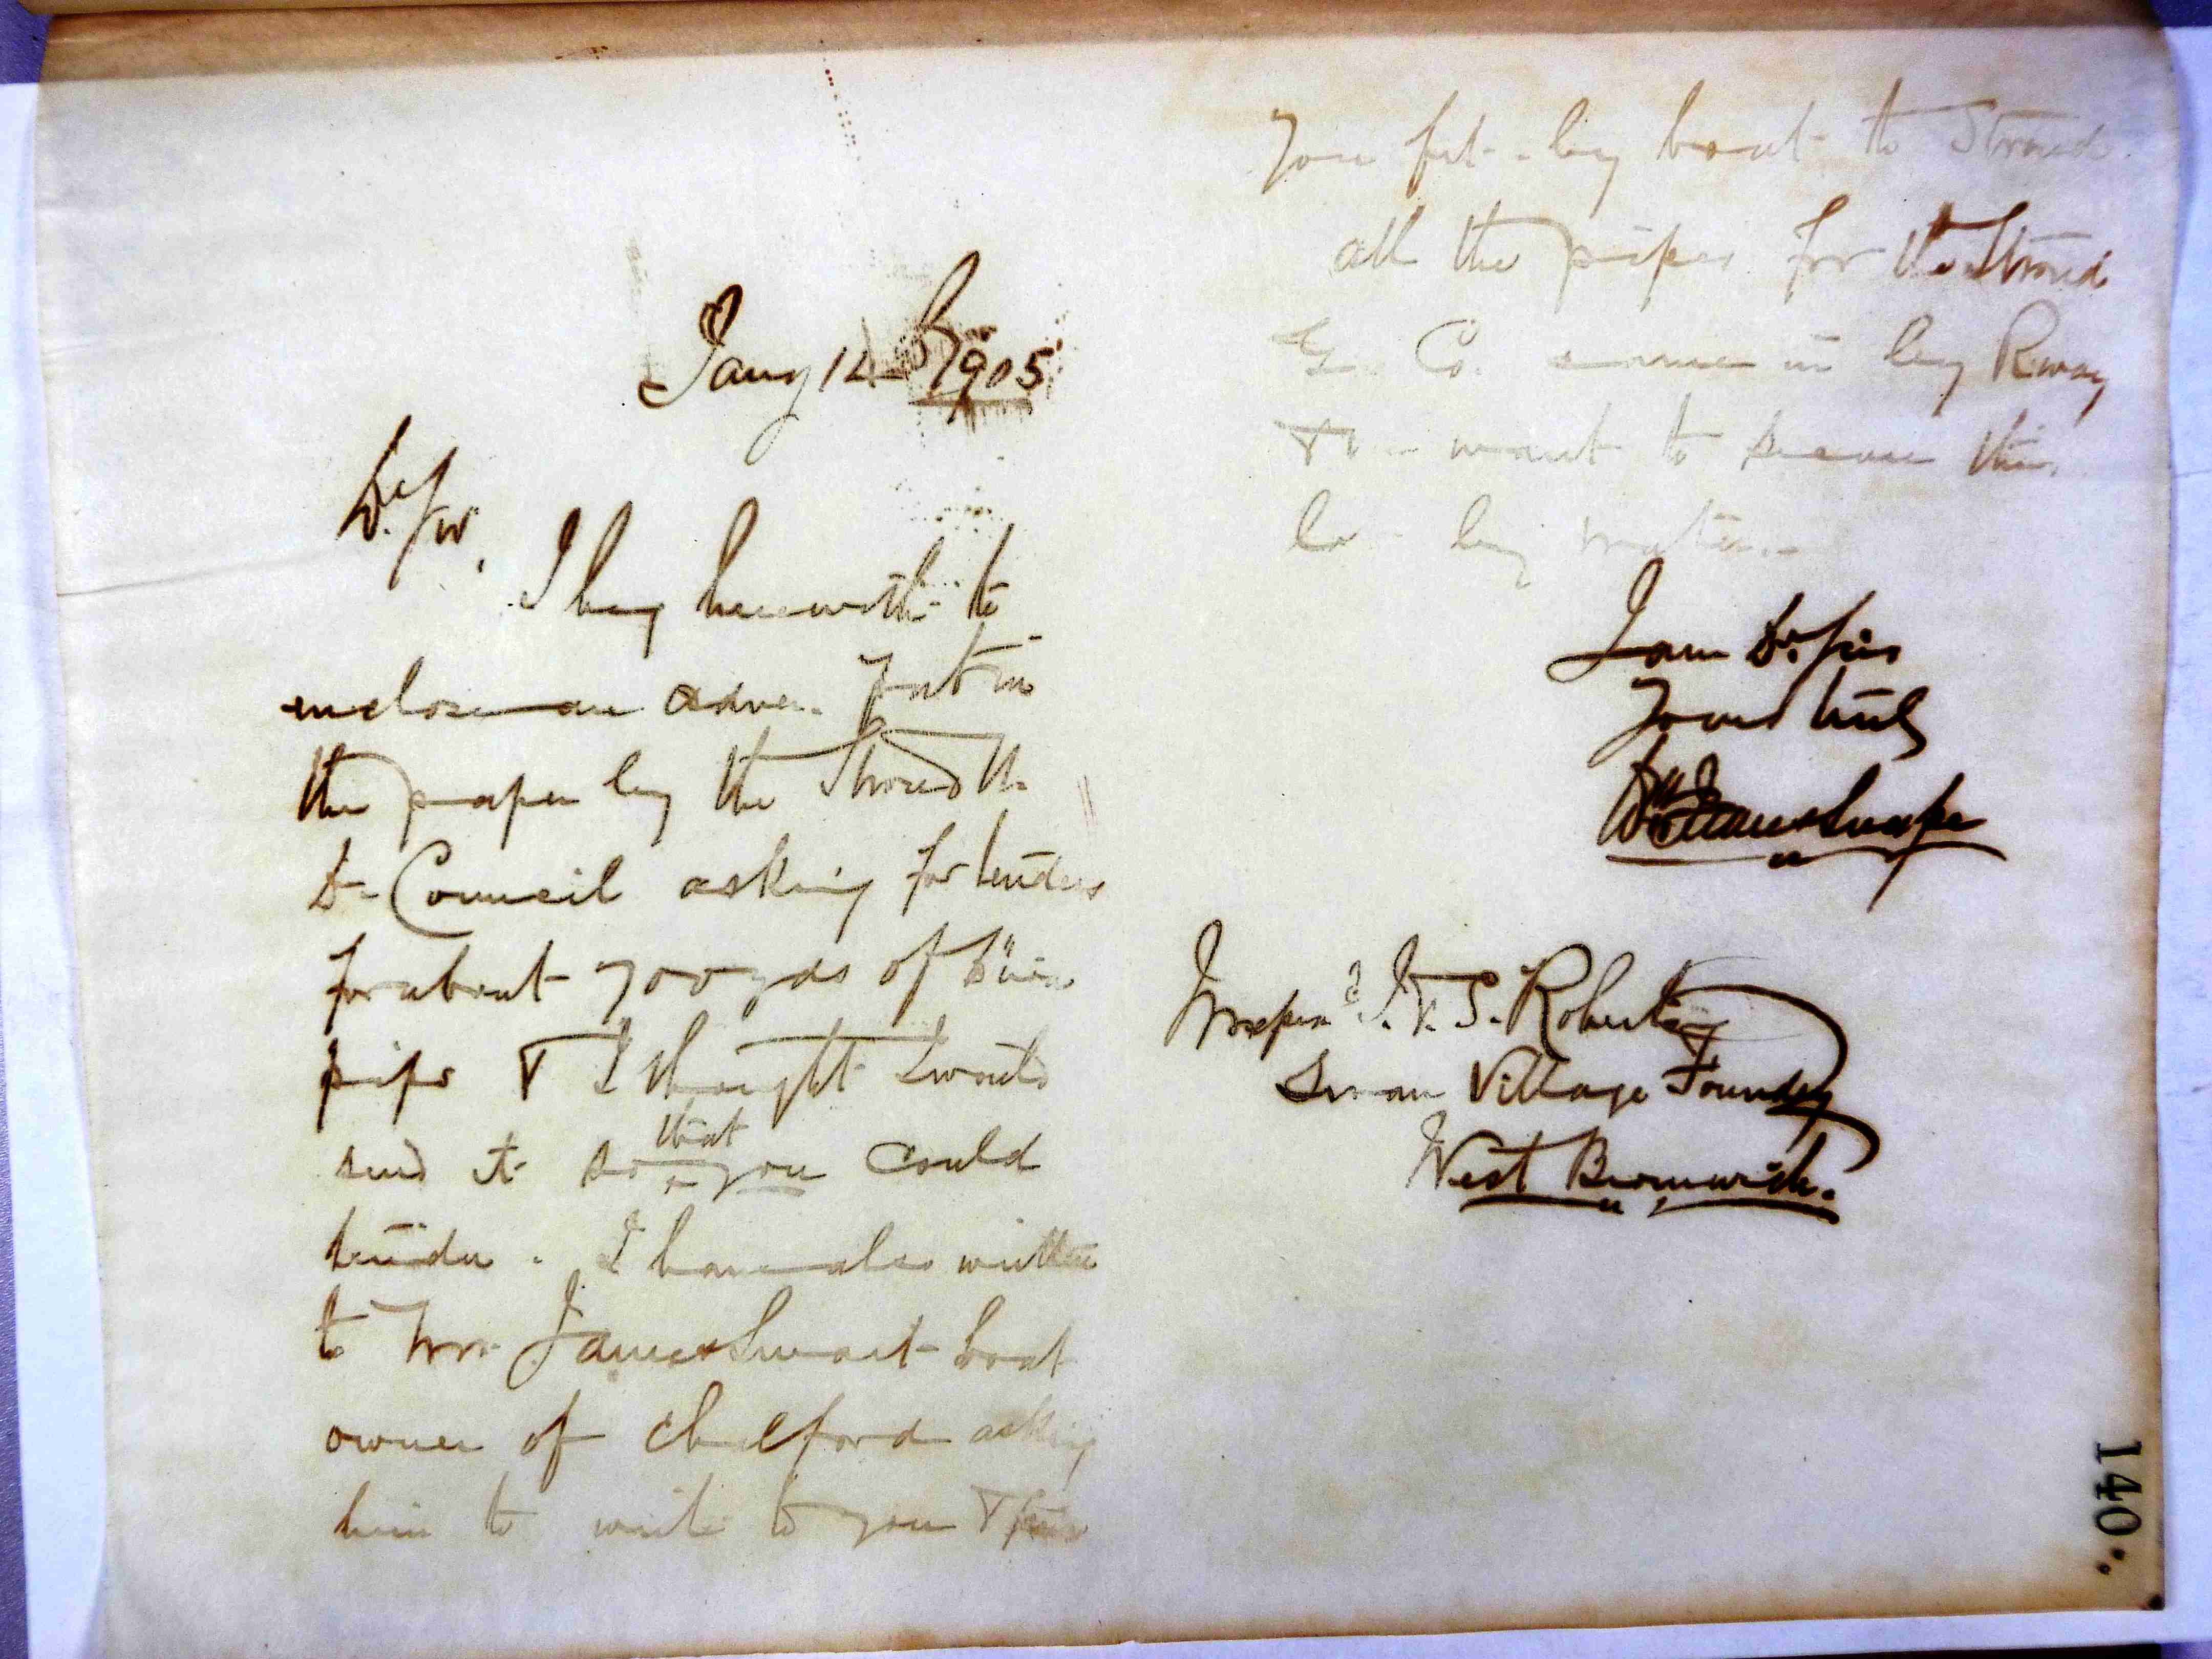 Jany 12 1905
Dr Sir,
I beg herewith to
enclose an adver. put in
the paper by the Stroud U.
D. Council asking for tenders
for about 700 yds of 5 in
pipes & I thought I would
send it so that you could
tender. I have also written
to Mr. James Smart boat
owner of Chalford asking
him to write to you & give
you frt. by boat to Stroud.
all the pipes for the Stroud
G. Co. came in by Rway
& we want to secure this
lot by water.
I am Dr. Sir
Yours truly
Wm J Snape
Messrs J. & S. Roberts
Swan Village Foundry
West Bromwich.
140